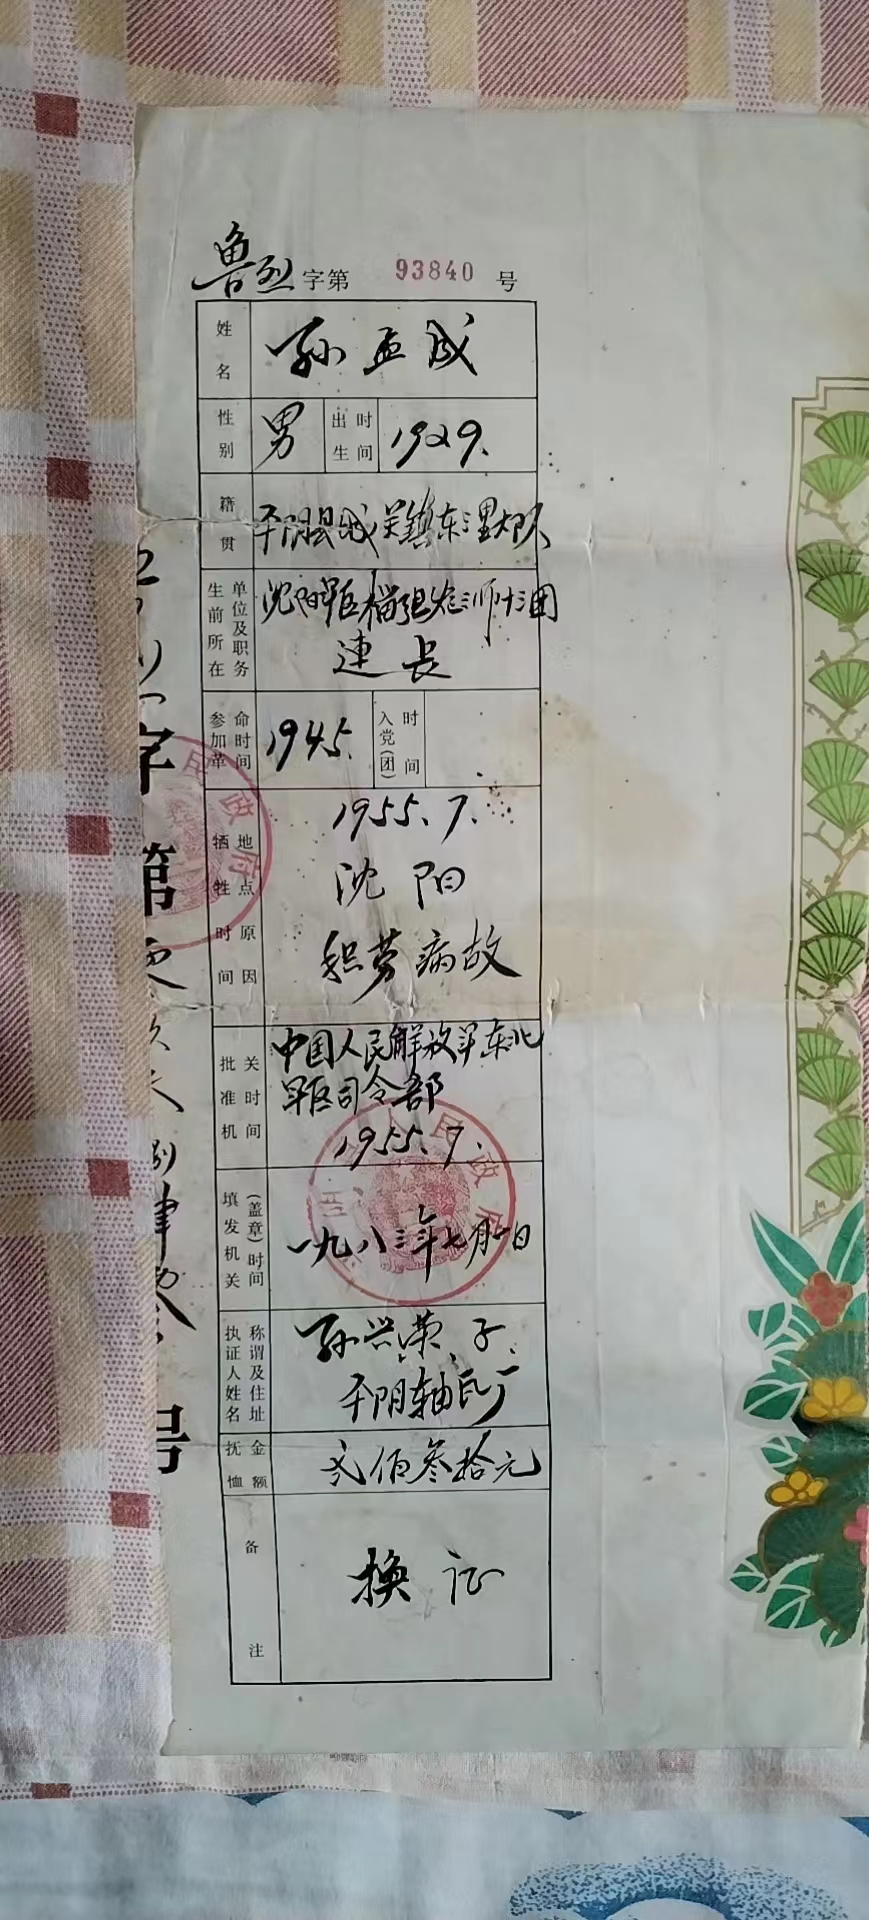 鲁烈字第 93840 号
姓名 孙孟成
性别 男 出生时间 1929.
籍贯 平阴县城关镇东三里大队
生前所在单位及职务 沈阳军区 师十三团
連长
参加革命时间 1945. 入党(团)时间
牺牲时间地点原因 1955.7.
沈阳
积劳病故
批准机关时间 中国人民解放军东北
军区司令部
1955.7.
填发机关(盖章)时间 一九八三年七月一日
执证人姓名称谓及住址 孙兴荣、子.
平阴轴瓦厂
抚恤金额 贰佰叁拾元
备注 换证
字第
号